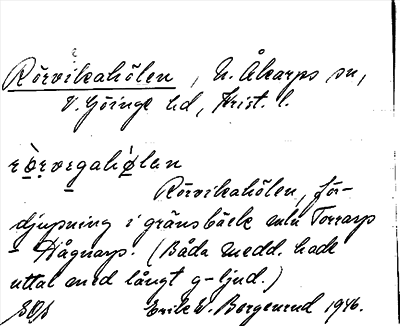 Rörvikahölen, N. Åkarps sn,
V. Göinge hd, Krist. l.
rö̱rve̱gahø̱len
Rörvikahölen, för-
djupning i gränsbäck mln Torrarp
- Hågnarp. (Båda medd. hade
uttal med långt g-ljud.)
Erik W. Borgenrud 1946.